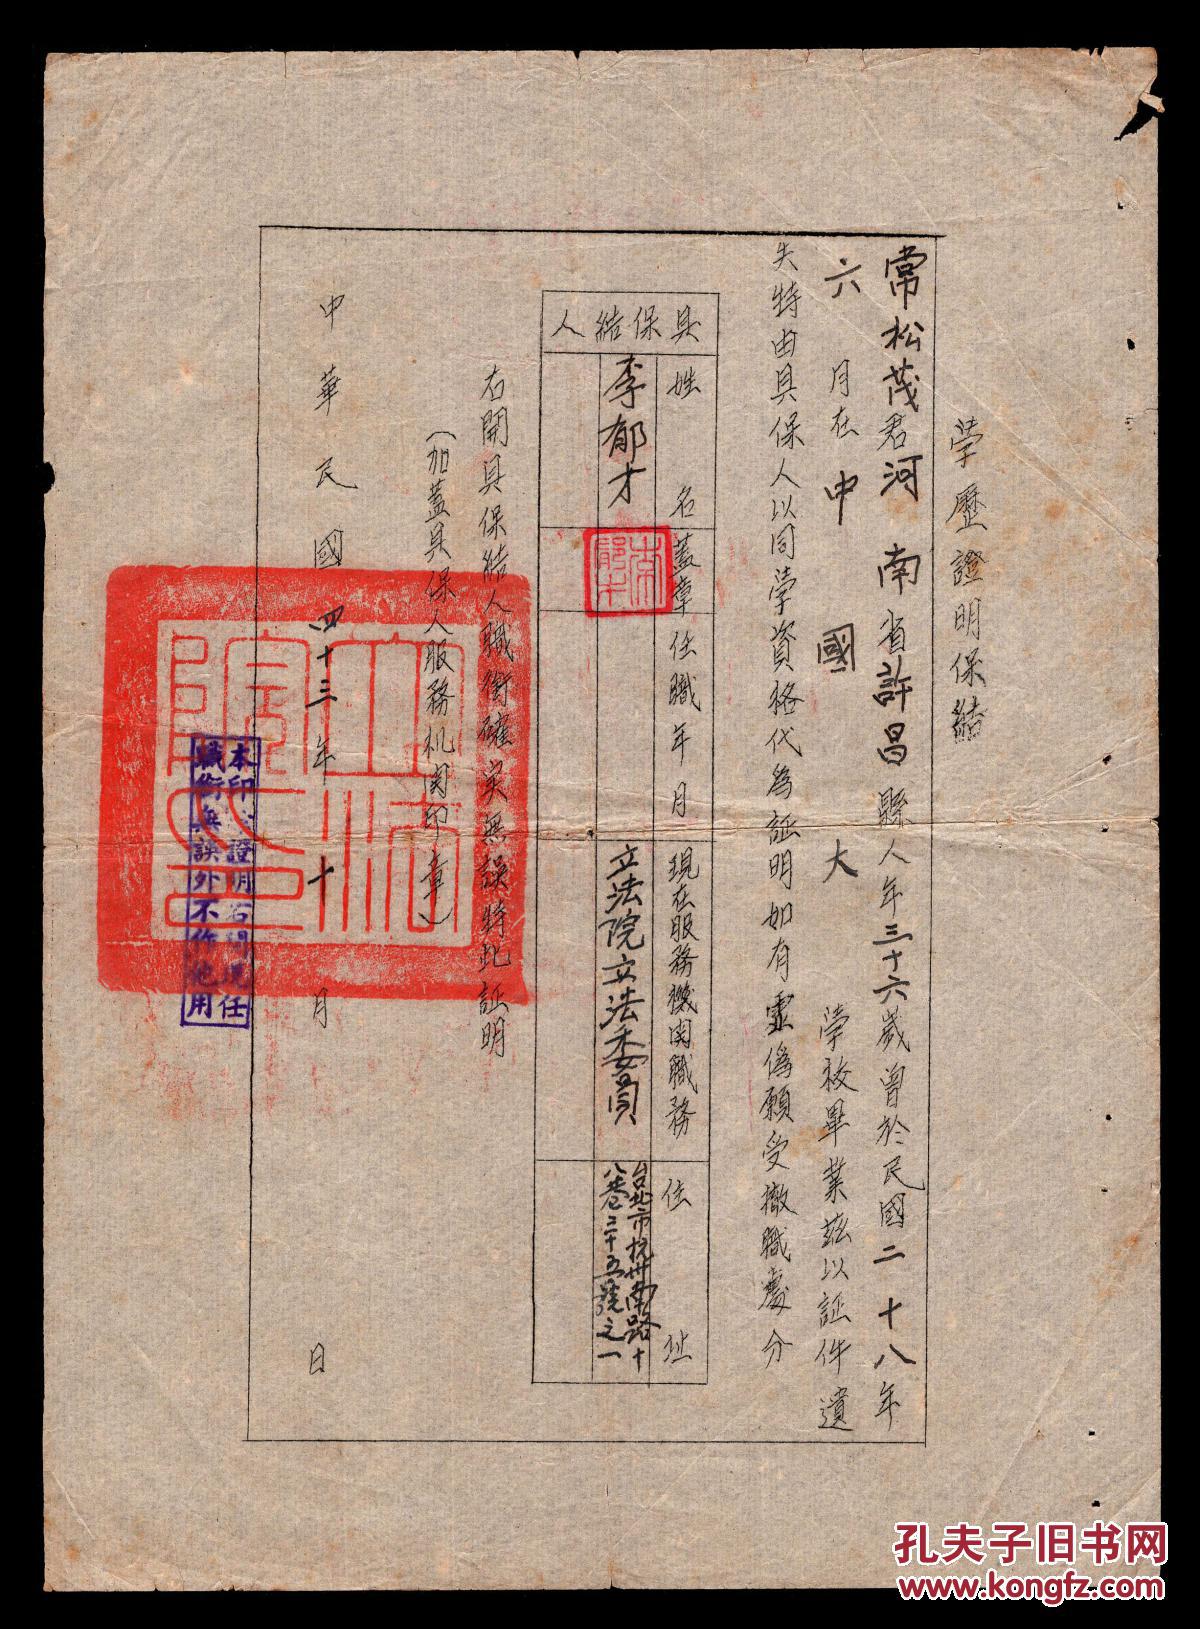 学歷證明保結
常松茂君河南省許昌縣人年三十六歲曾於民國二十八年
六月在中國大学校畢業茲以証件遺
失特由具保人以同学資格代為証明如有虛偽願受撤職處分
具保結人
姓名
蓋章
任職年月
現在服務機関職務
住址
李郁才
立法院立法委員
台北市杭州南路十
八巷三十五號之一
右開具保結人職銜確实無誤特此証明
(加蓋具保人服務机関印章)
中華民國四十三年十月日
立法院之印
本印證明右開現任
職銜無誤外不作他用
孔夫子旧书网
www.kongfz.com